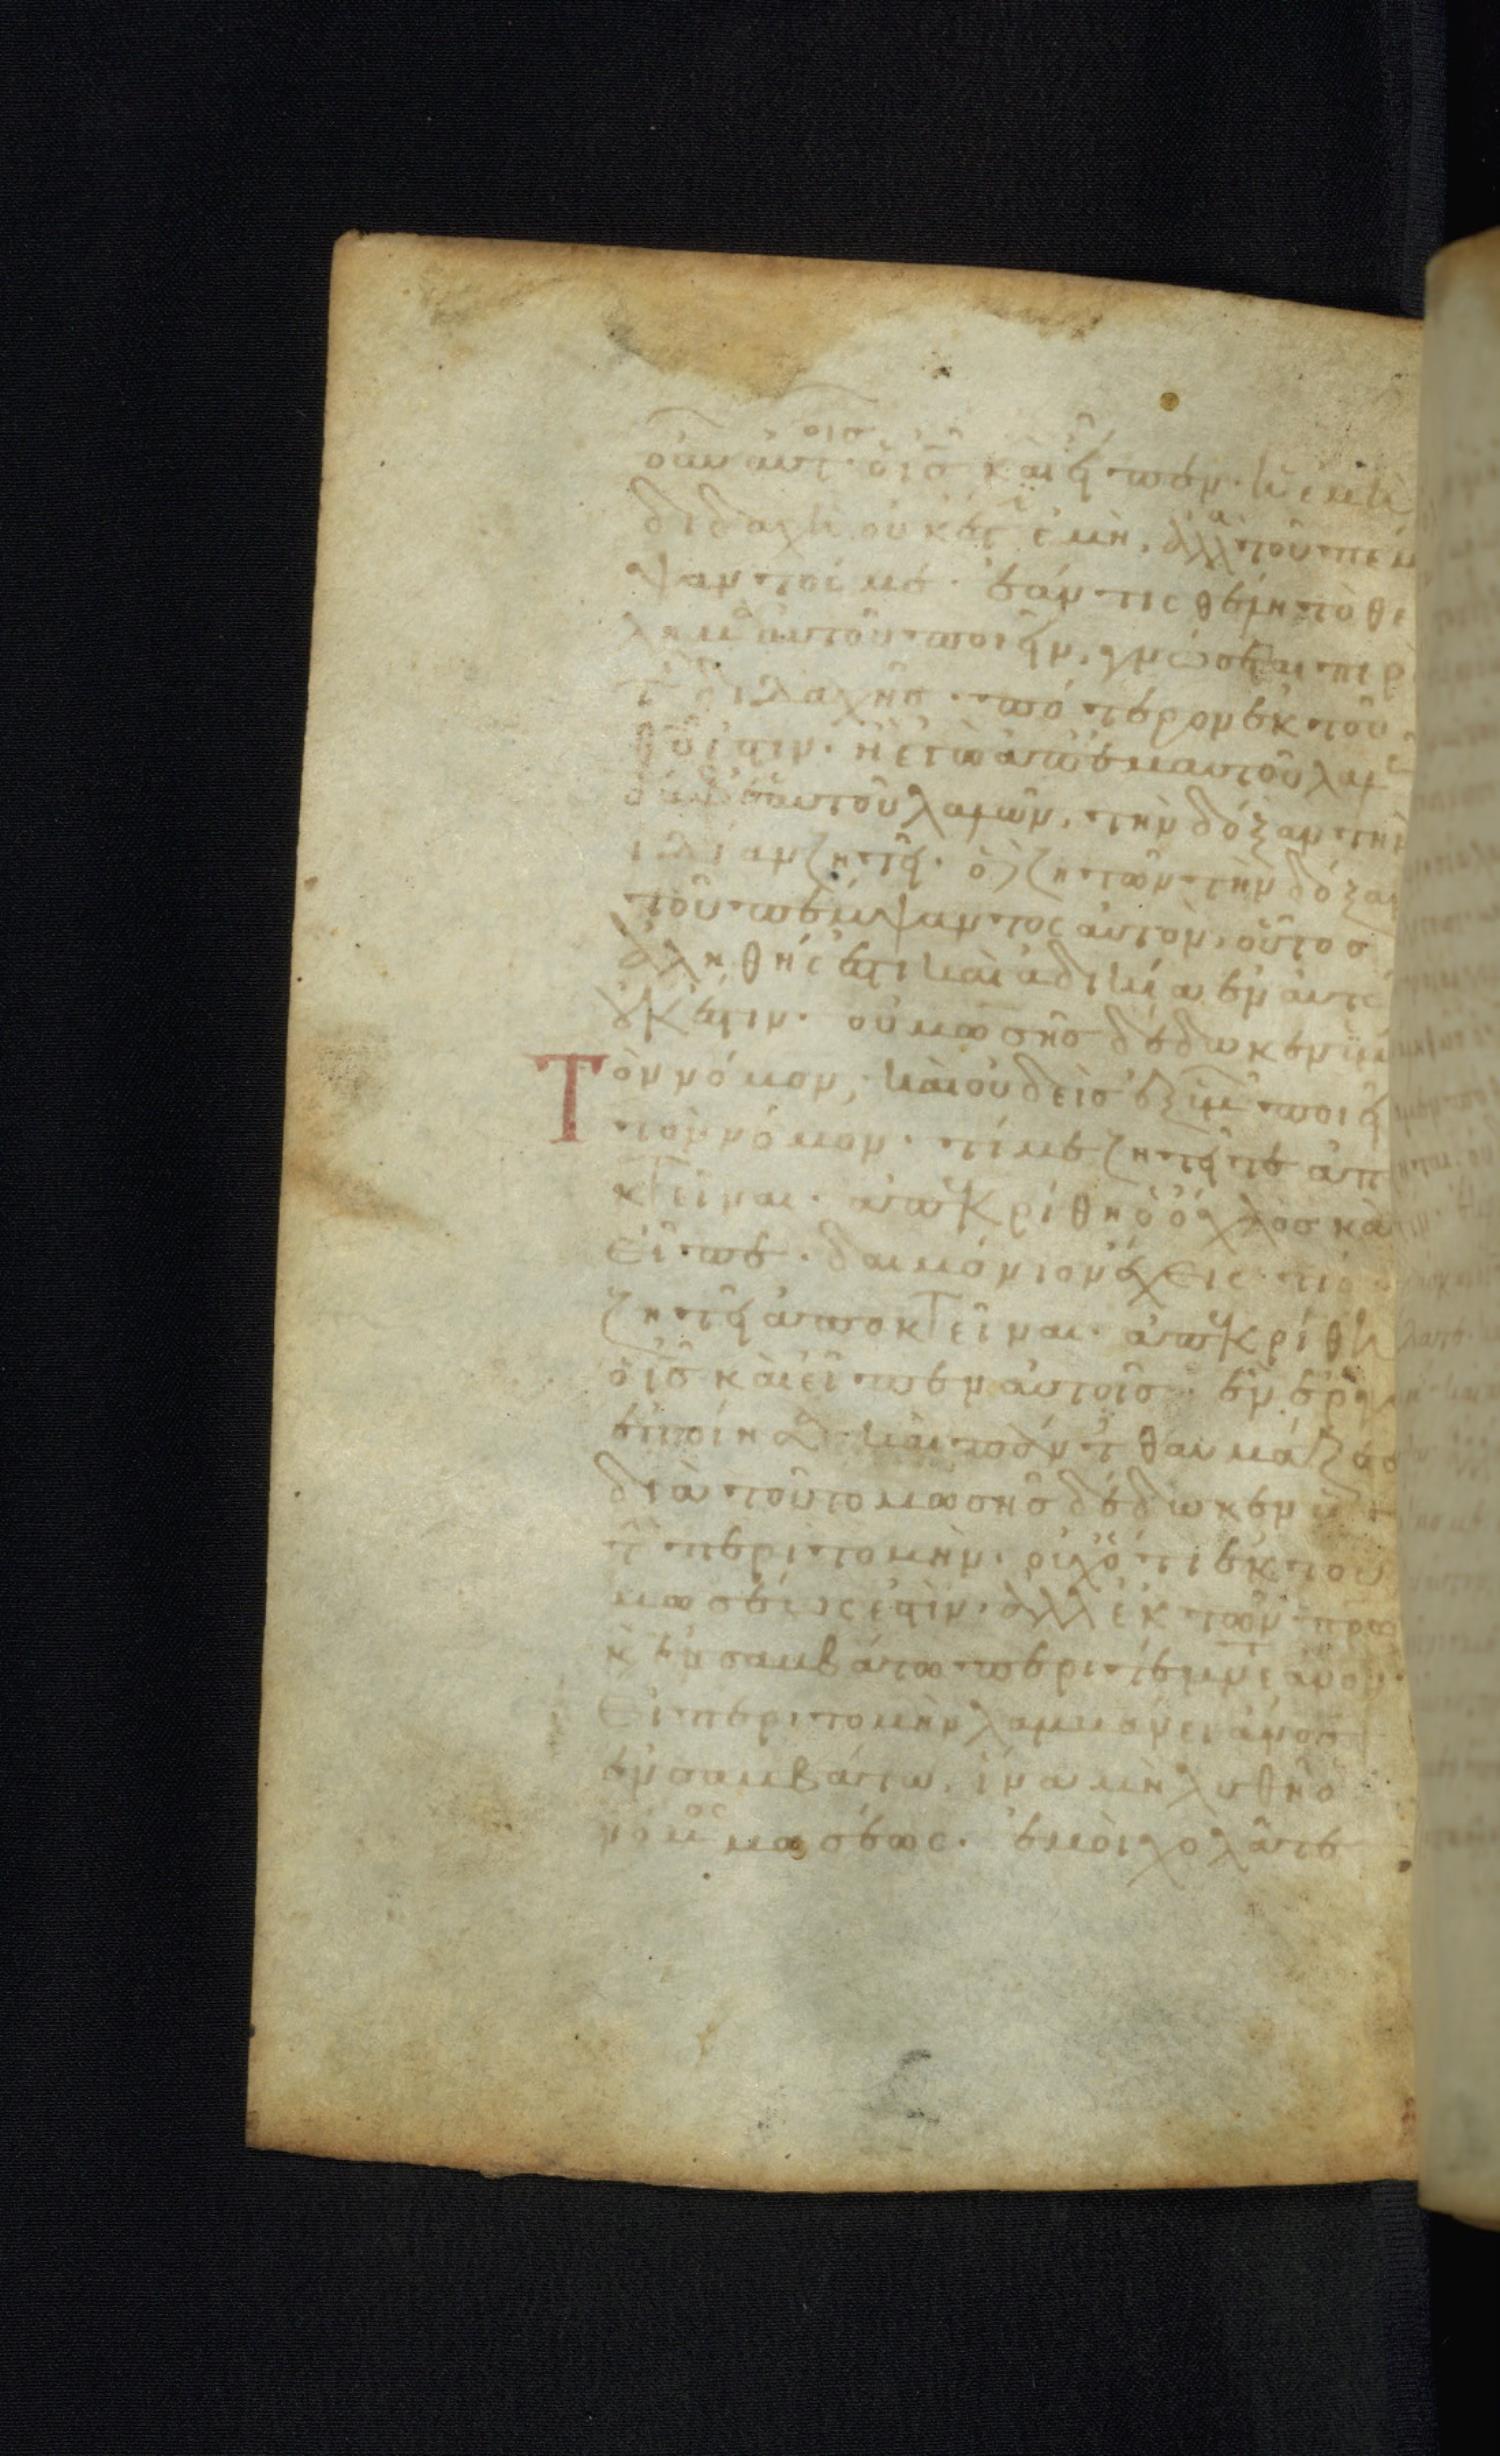 οὖν αὐτοῖς ὁ ις̅ καὶ εἶπεν· ἡ ἐμὴ
διδαχὴ οὐκ ἔστιν ἐμὴ. ἀλλὰ τοῦ πέμ
ψαντός με· ἐάν τις θέλη τὸ θέ
λημα αὐτοῦ ποιεῖν, γνώσεται περὶ
τῆς διδαχῆς. πότερον ἐκ τοῦ
θυ̅ ἐστιν. ἢ ἐγὼ ἀπ' ἐμαυτοῦ λαλῶ
ὁ ἀφ' ἑαυτοῦ λαλῶν, τὴν δόξαν τὴν
ἰδίαν ζητεῖ. ὁ δὲ ζητῶν τὴν δόξαν
τοῦ πέμψαντος αὐτὸν, οὗτος
ἀληθής ἐστι καὶ ἀδικία ἐν αὐτῶ
οὐκ ἔστιν. οὐ μωσῆς δέδωκεν ὑμῖν
Τὸν νόμον, καὶ οὐδεὶς ἐξ ὑμῶν ποιεῖ
τὸν νόμον. τί με ζητεῖτε ἀπο
κτεῖναι. ἀπεκρίθη ὁ ὄχλος καὶ
εἶπε. δαιμόνιον ἔχεις τίς σε
ζητεῖ ἀποκτεῖναι. ἀπεκρίθη
ὁ ις̅ καὶ εἶπεν αὐτοῖς. ἓν ἔργον
ἐποίησα καὶ πάντες θαυμάζετε
διὰ τοῦτο μωσῆς δέδωκεν ὑμῖν
τὴν περιτομὴν. οὐχ ὅτι ἐκ τοῦ
μωσέως ἐστὶν. ἀλλ' ἐκ τῶν πρων
καὶ ἐν σαββάτω περιτέμνετε ανον.
Εἰ περιτομὴν λαμβάνει ανος
ἐν σαββάτω, ἵνα μὴ λυθῆ ὁ
νόμος μωσέως. ἐμοὶ χολᾶτε